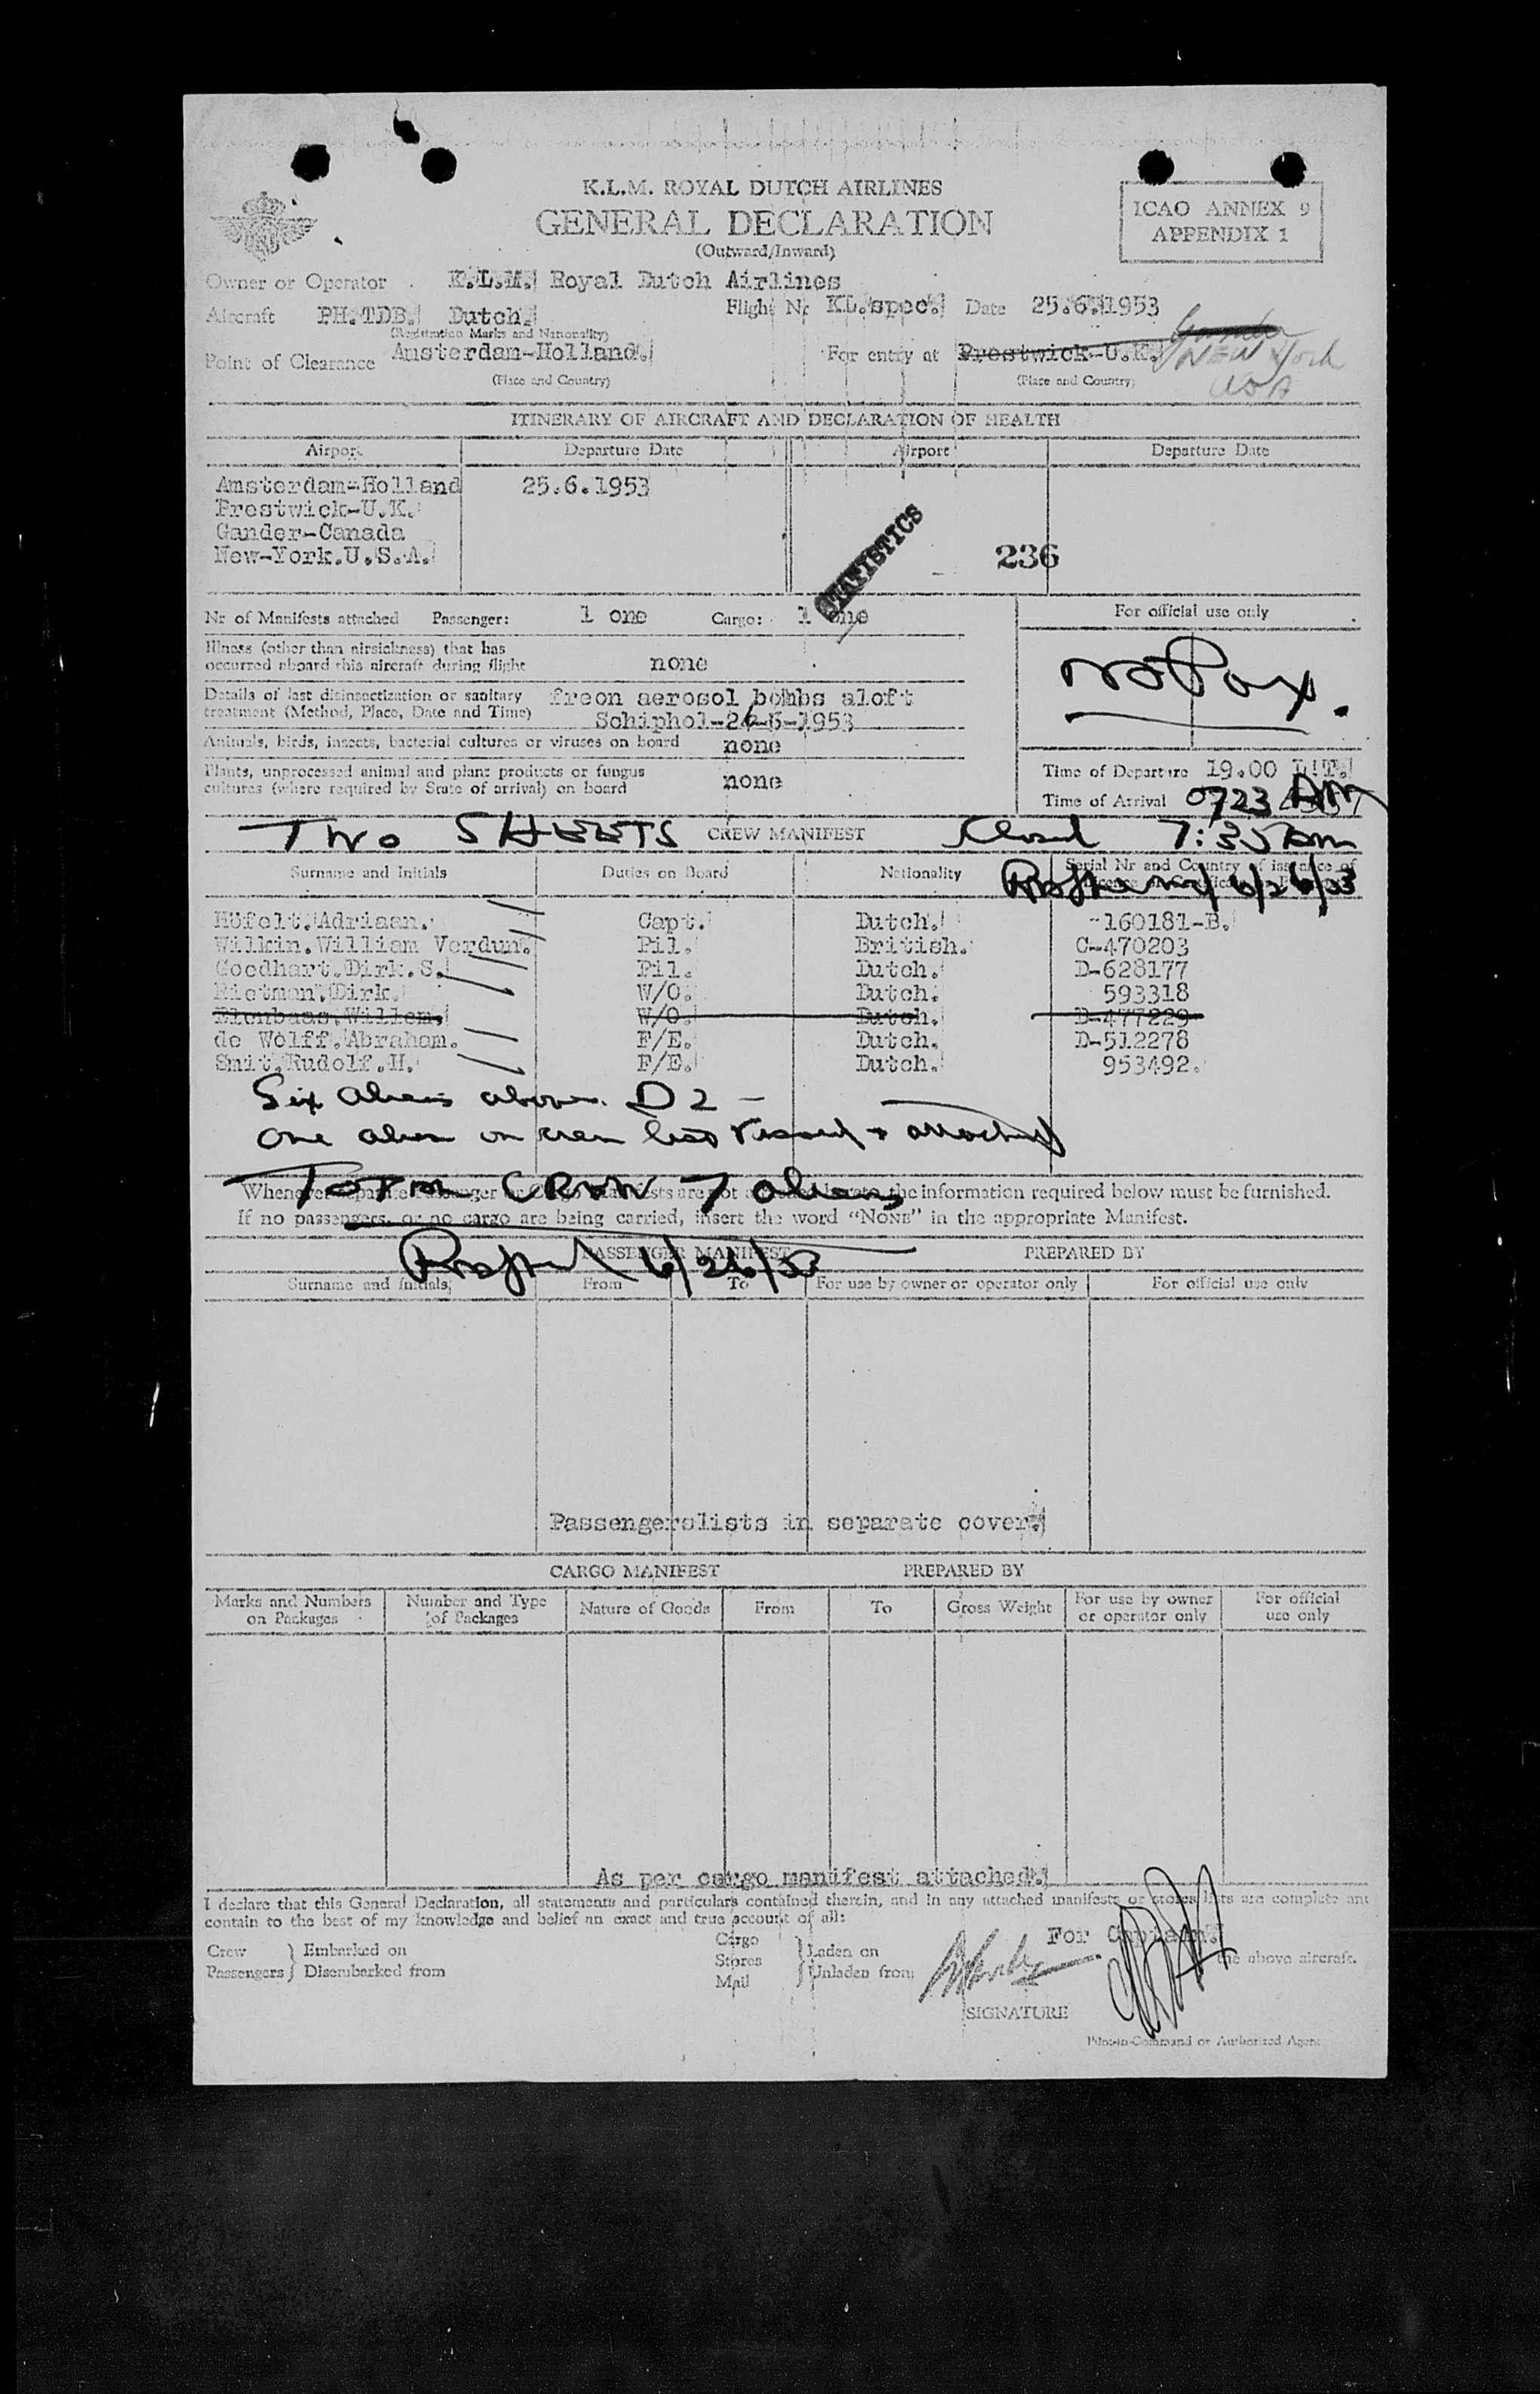 K.L.M. ROYAL DUTCH AIRLINES
GENERAL DECLARATION
(Outward/Inward)
ICAO ANNEX 9
APPENDIX 1
Owner or Operator . K.L.M. Royal Dutch Airlines
Aircraft PH.TDB. Dutch. Flight Nr KL.spec. Date 25.6.1953
(Registration Marks and Nationality)
Point of Clearance Amsterdam-Holland. For entry at Prestwick-U.K. Gander
NEW York
USA
(Place and Country) (Place and Country)
ITINERARY OF AIRCRAFT AND DECLARATION OF HEALTH
Airport Departure Date Airport Departure Date
Amsterdam-Holland 25.6.1953
Prestwick-U.K.
Gander-Canada
New-York.U.S.A.
STATISTICS
236
Nr of Manifests attached Passenger: 1 one Cargo: 1 one
For official use only
Illness (other than airsickness) that has
occurred aboard this aircraft during flight none
Details of last disinsectization or sanitary
treatment (Method, Place, Date and Time) freon aerosol bombs aloft
Schiphol-24-6-1953
Animals, birds, insects, bacterial cultures or viruses on board none
Plants, unprocessed animal and plant products or fungus
cultures (where required by State of arrival) on board none
No Pax.
Time of Departure 19.00 L.T.
Time of Arrival 0723 AM
TWO SHEETS CREW MANIFEST Closed 7:35 AM
Surname and Initials Duties on Board Nationality Serial Nr and Country of issuance of
6/26/53
Höfelt.Adriaan. Capt. Dutch. 160181-B.
Wilkin.William Verdun. Pil. British. C-470203
Goedhart.Dirk.S. Pil. Dutch. D-628177
Rietman.Dirk. W/O. Dutch. 593318
Elenbaas.Willem. W/O. Dutch. D-477229
de Wolff.Abraham. F/E. Dutch. D-512278
Smit.Rudolf.H. F/E. Dutch. 953492.
Six aliens above D2 -
one alien on crew list visaed & attached
Total CREW 7 aliens
Whenever separate Passenger or Cargo Manifests are not the information required below must be furnished.
If no passengers, or no cargo are being carried, insert the word “NONE” in the appropriate Manifest.
PASSENGER MANIFEST PREPARED BY
6/26/53
Surname and Initials From To For use by owner or operator only For official use only
Passengerslists in separate cover.
CARGO MANIFEST PREPARED BY
Marks and Numbers on Packages Number and Type of Packages Nature of Goods From To Gross Weight For use by owner or operator only For official use only
As per cargo manifest attached.
I declare that this General Declaration, all statements and particulars contained therein, and in any attached manifests or stores lists are complete and
contain to the best of my knowledge and belief an exact and true account of all:
For Captain.
Crew Passengers } Embarked on Disembarked from
Cargo Stores Mail } Laden on Unladen from
the above aircraft.
SIGNATURE
Pilot-in-Command or Authorized Agent